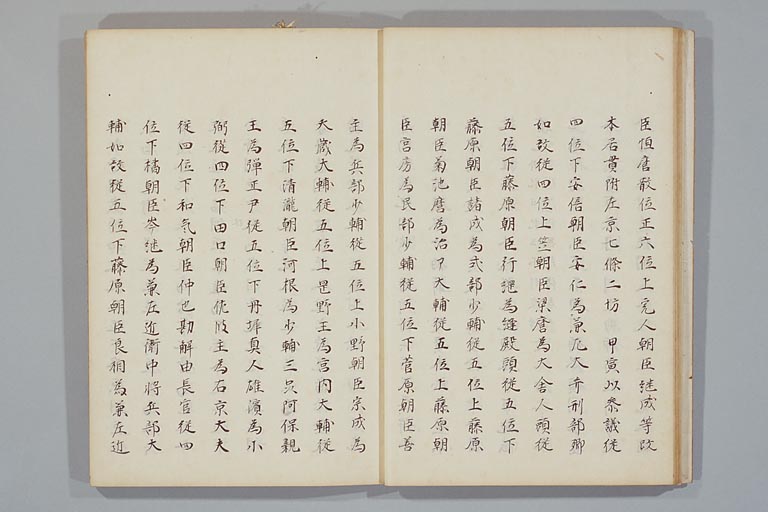 臣恒麿散位正六位上宍人朝臣継成等改
本居貫附左京七條二坊 甲寅以参議従
四位下安倍朝臣安仁為兼右大弁刑部卿
如故従四位上笠朝臣梁麿為大舎人頭従
五位下藤原朝臣行縄為縫殿頭従五位下
藤原朝臣諸成為式部少輔従五位上藤原
朝臣菊池麿為治部大輔従五位上藤原朝
臣宮房為民部少輔従五位下菅原朝臣善
主為兵部少輔従五位上小野朝臣宗成為
大蔵大輔従五位上是野王為宮内大輔従
五位下清瀧朝臣河根為少輔三品阿保親
王為弾正尹従五位下丹墀真人雄濱為小
弼従四位下田口朝臣佐波主為右京大夫
従四位下和気朝臣仲世勘解由長官従四
位下橘朝臣岑継為兼左近衛中将兵部大
輔如故従五位下藤原朝臣良相為兼左近